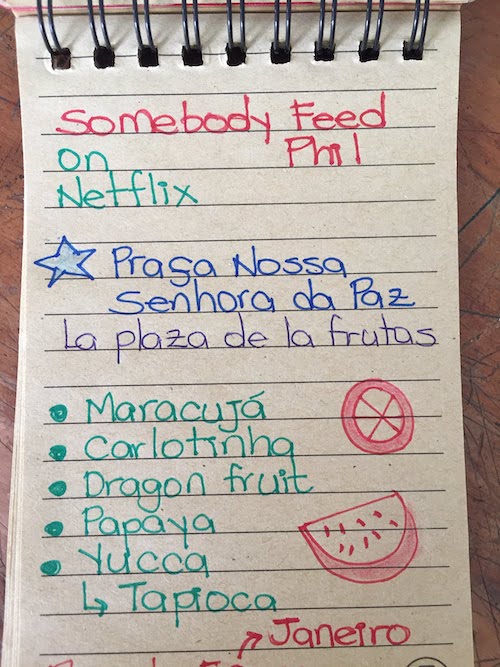 Somebody Feed
on Phil
Netflix
Praça Nossa
Senhora da Paz
La plaza de la frutas
Maracujá
Carlotinha
Dragon fruit
Papaya
Yucca
↳ Tapioca
Janeiro